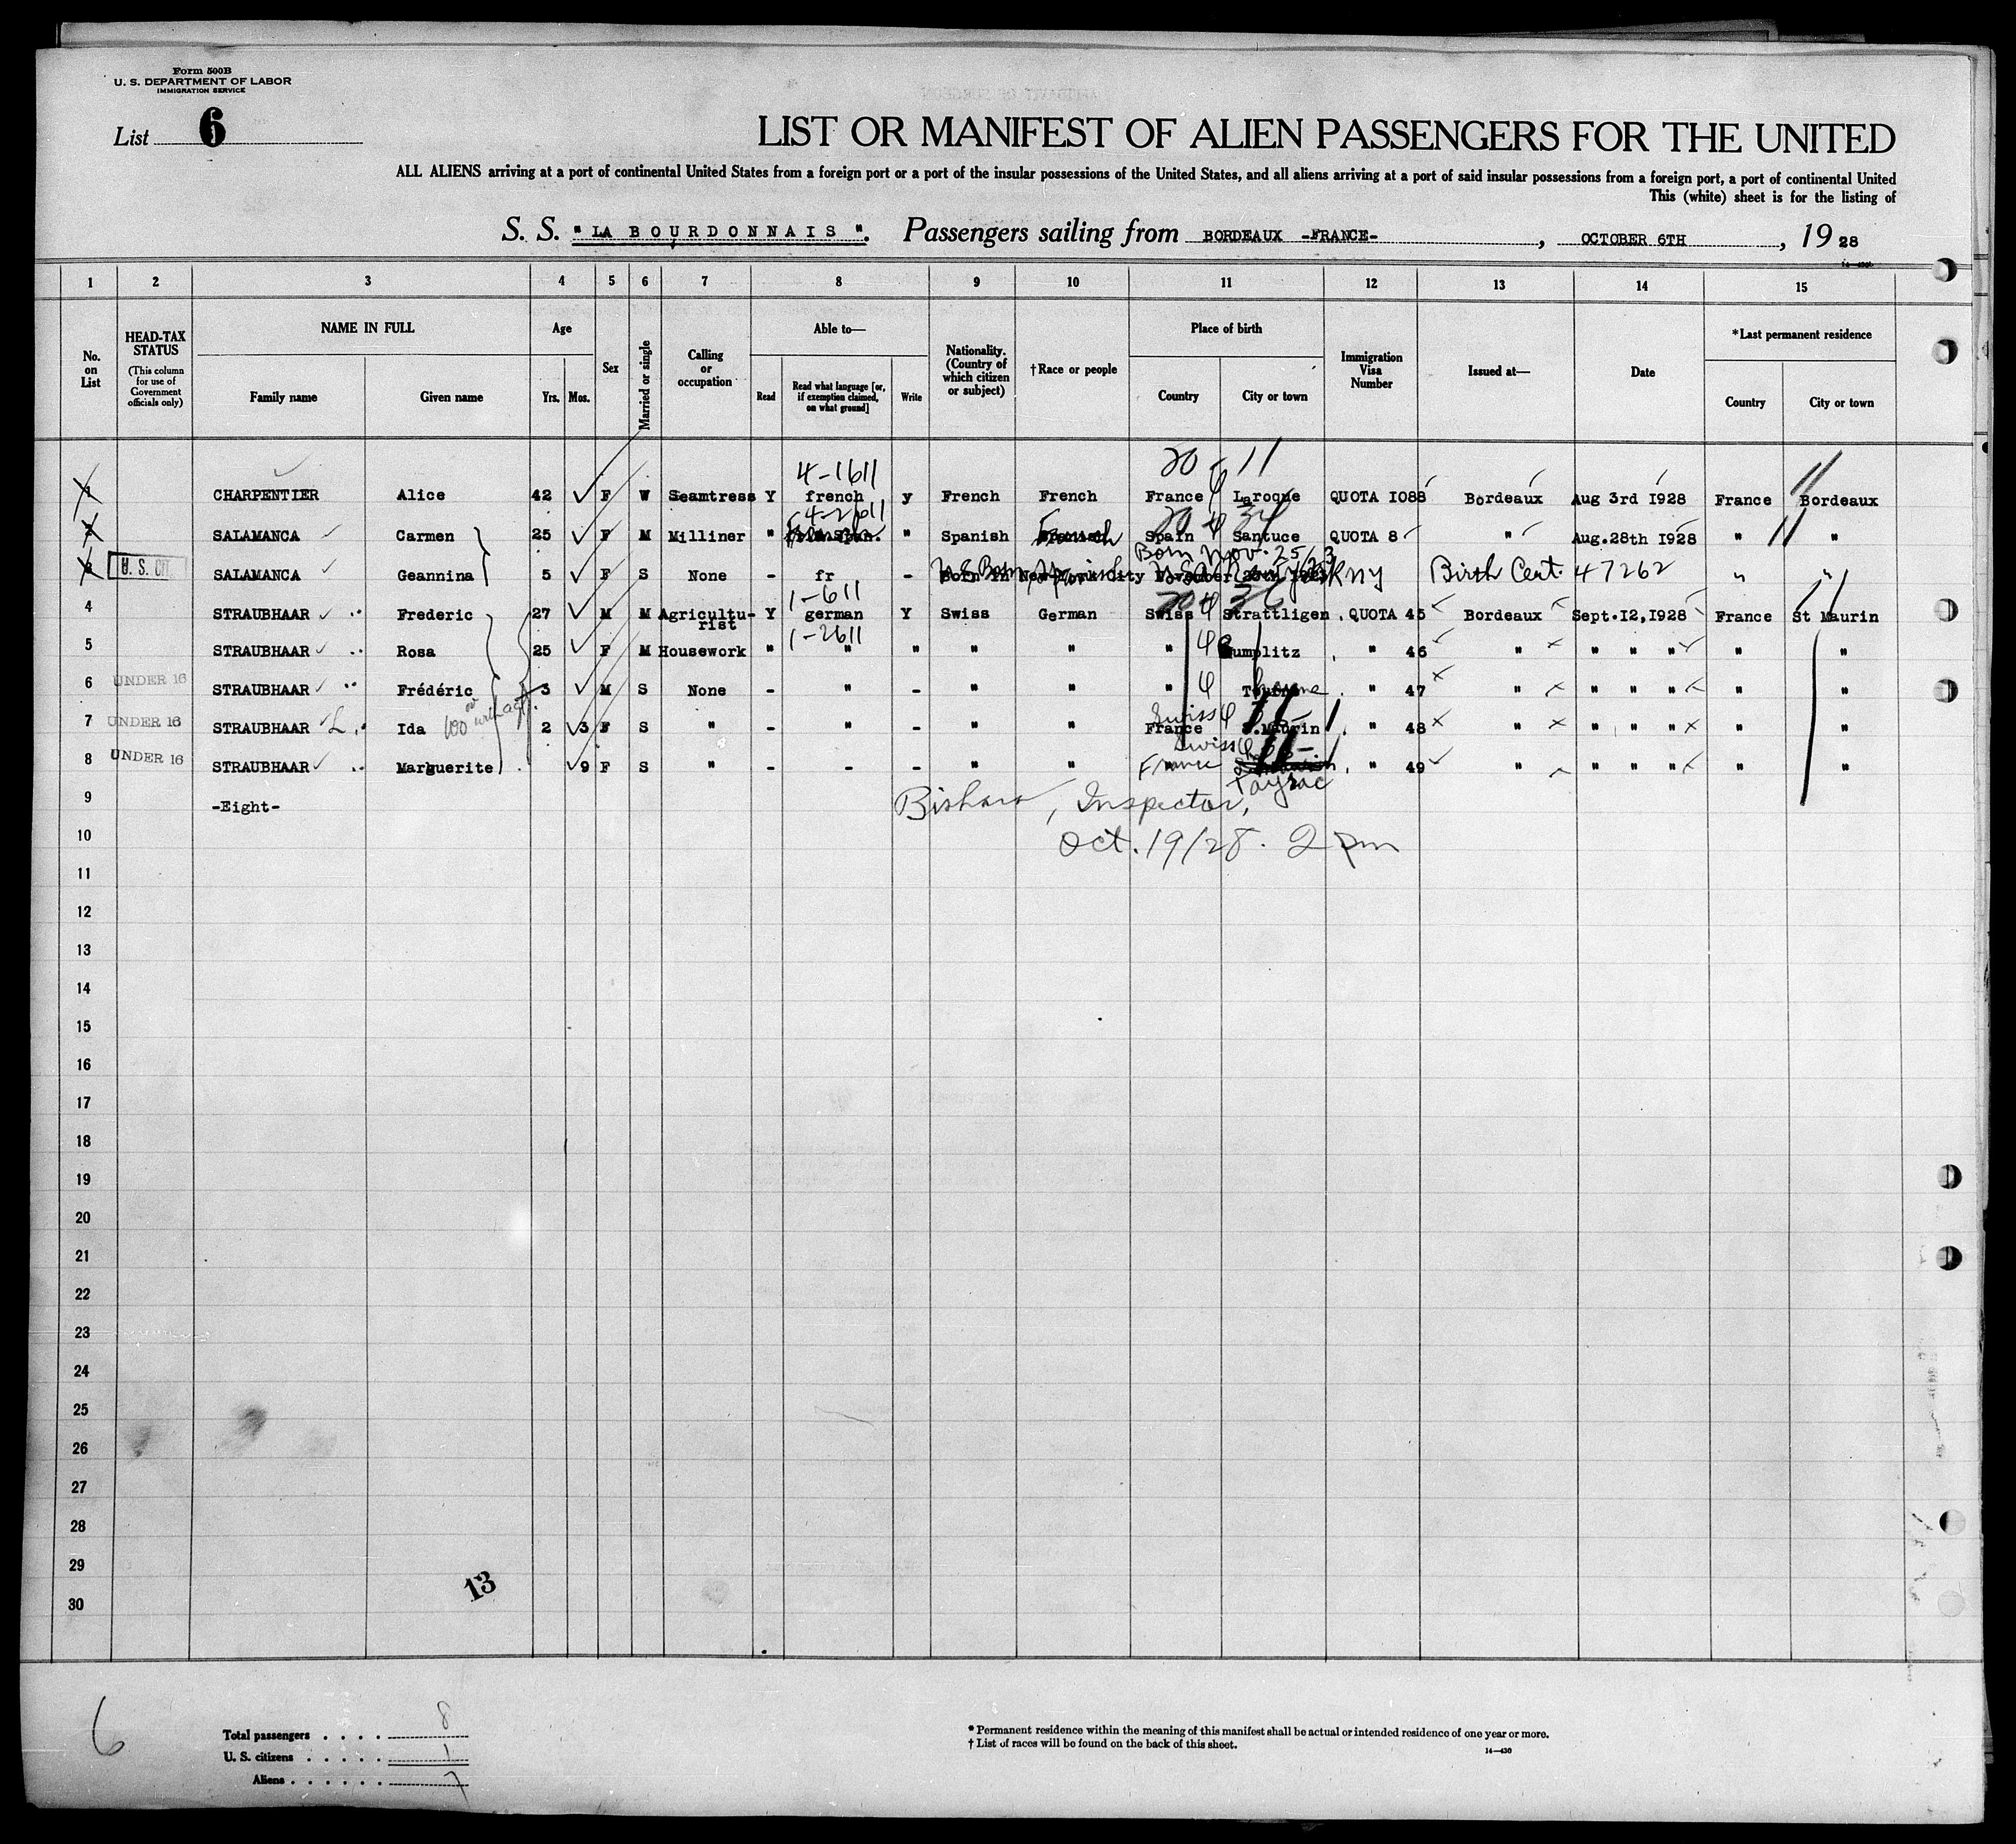 Form 500B
U. S. DEPARTMENT OF LABOR
IMMIGRATION SERVICE
List 6
LIST OR MANIFEST OF ALIEN PASSENGERS FOR THE UNITED
ALL ALIENS arriving at a port of continental United States from a foreign port or a port of the insular possessions of the United States, and all aliens arriving at a port of said insular possessions from a foreign port, a port of continental United
This (white) sheet is for the listing of
S. S. "LA BOURDONNAIS". Passengers sailing from BORDEAUX -FRANCE-, OCTOBER 6TH, 19 28
1 2 3 4 5 6 7 8 9 10 11 12 13 14 15
No. on List
HEAD-TAX STATUS
(This column for use of Government officials only)
NAME IN FULL
Family name Given name
Age
Yrs. Mos.
Sex
Married or single
Calling or occupation
Able to—
Read
Read what language [or, if exemption claimed, on what ground]
Write
Nationality. (Country of which citizen or subject)
†Race or people
Place of birth
Country City or town
Immigration Visa Number
Issued at—
Date
*Last permanent residence
Country City or town
4-1611 20-11
1 CHARPENTIER Alice 42 F W Seamtress Y french y French French France Laroque QUOTA 1088 Bordeaux Aug 3rd 1928 France Bordeaux
4-2611
2 SALAMANCA Carmen 25 F M Milliner " " Spanish Spain Santuce QUOTA 8 " Aug.28th 1928 " "
Born Nov. 25/23
3 U. S. CIT SALAMANCA Geannina 5 F S None - fr - Born in New York City November NY Birth Cert. 47262 " "
1-611
4 STRAUBHAAR Frederic 27 M M Agricultu-rist Y german Y Swiss German Swiss Strattligen QUOTA 45 Bordeaux Sept.12,1928 France St Maurin
1-2611
5 STRAUBHAAR Rosa 25 F M Housework " " " " " " Bumplitz " 46 " " " " " "
6 UNDER 16 STRAUBHAAR Frédéric 3 M S None - " - " " " " 47 " " " " " "
Swiss
7 UNDER 16 STRAUBHAAR Ida 2 3 F S " - " - " " France S.Maurin " 48 " " " " " "
Swiss
8 UNDER 16 STRAUBHAAR Marguerite 9 F S " - - - " " France " 49 " " " " " "
Tayrac
9 -Eight- Bishara, Inspector,
10 Oct. 19/28. 2 pm
11
12
13
14
15
16
17
18
19
20
21
22
23
24
25
26
27
28
29
13
30
6
Total passengers . . . . 8
U. S. citizens . . . . . 1
Aliens . . . . . . 7
* Permanent residence within the meaning of this manifest shall be actual or intended residence of one year or more.
† List of races will be found on the back of this sheet.
14—430